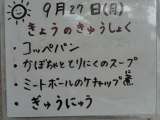 9月27日(月)
きょうのきゅうしょく
・コッペパン
・かぼちゃととりにくのスープ
・ミートボールのケチャップ煮
・ぎゅうにゅう